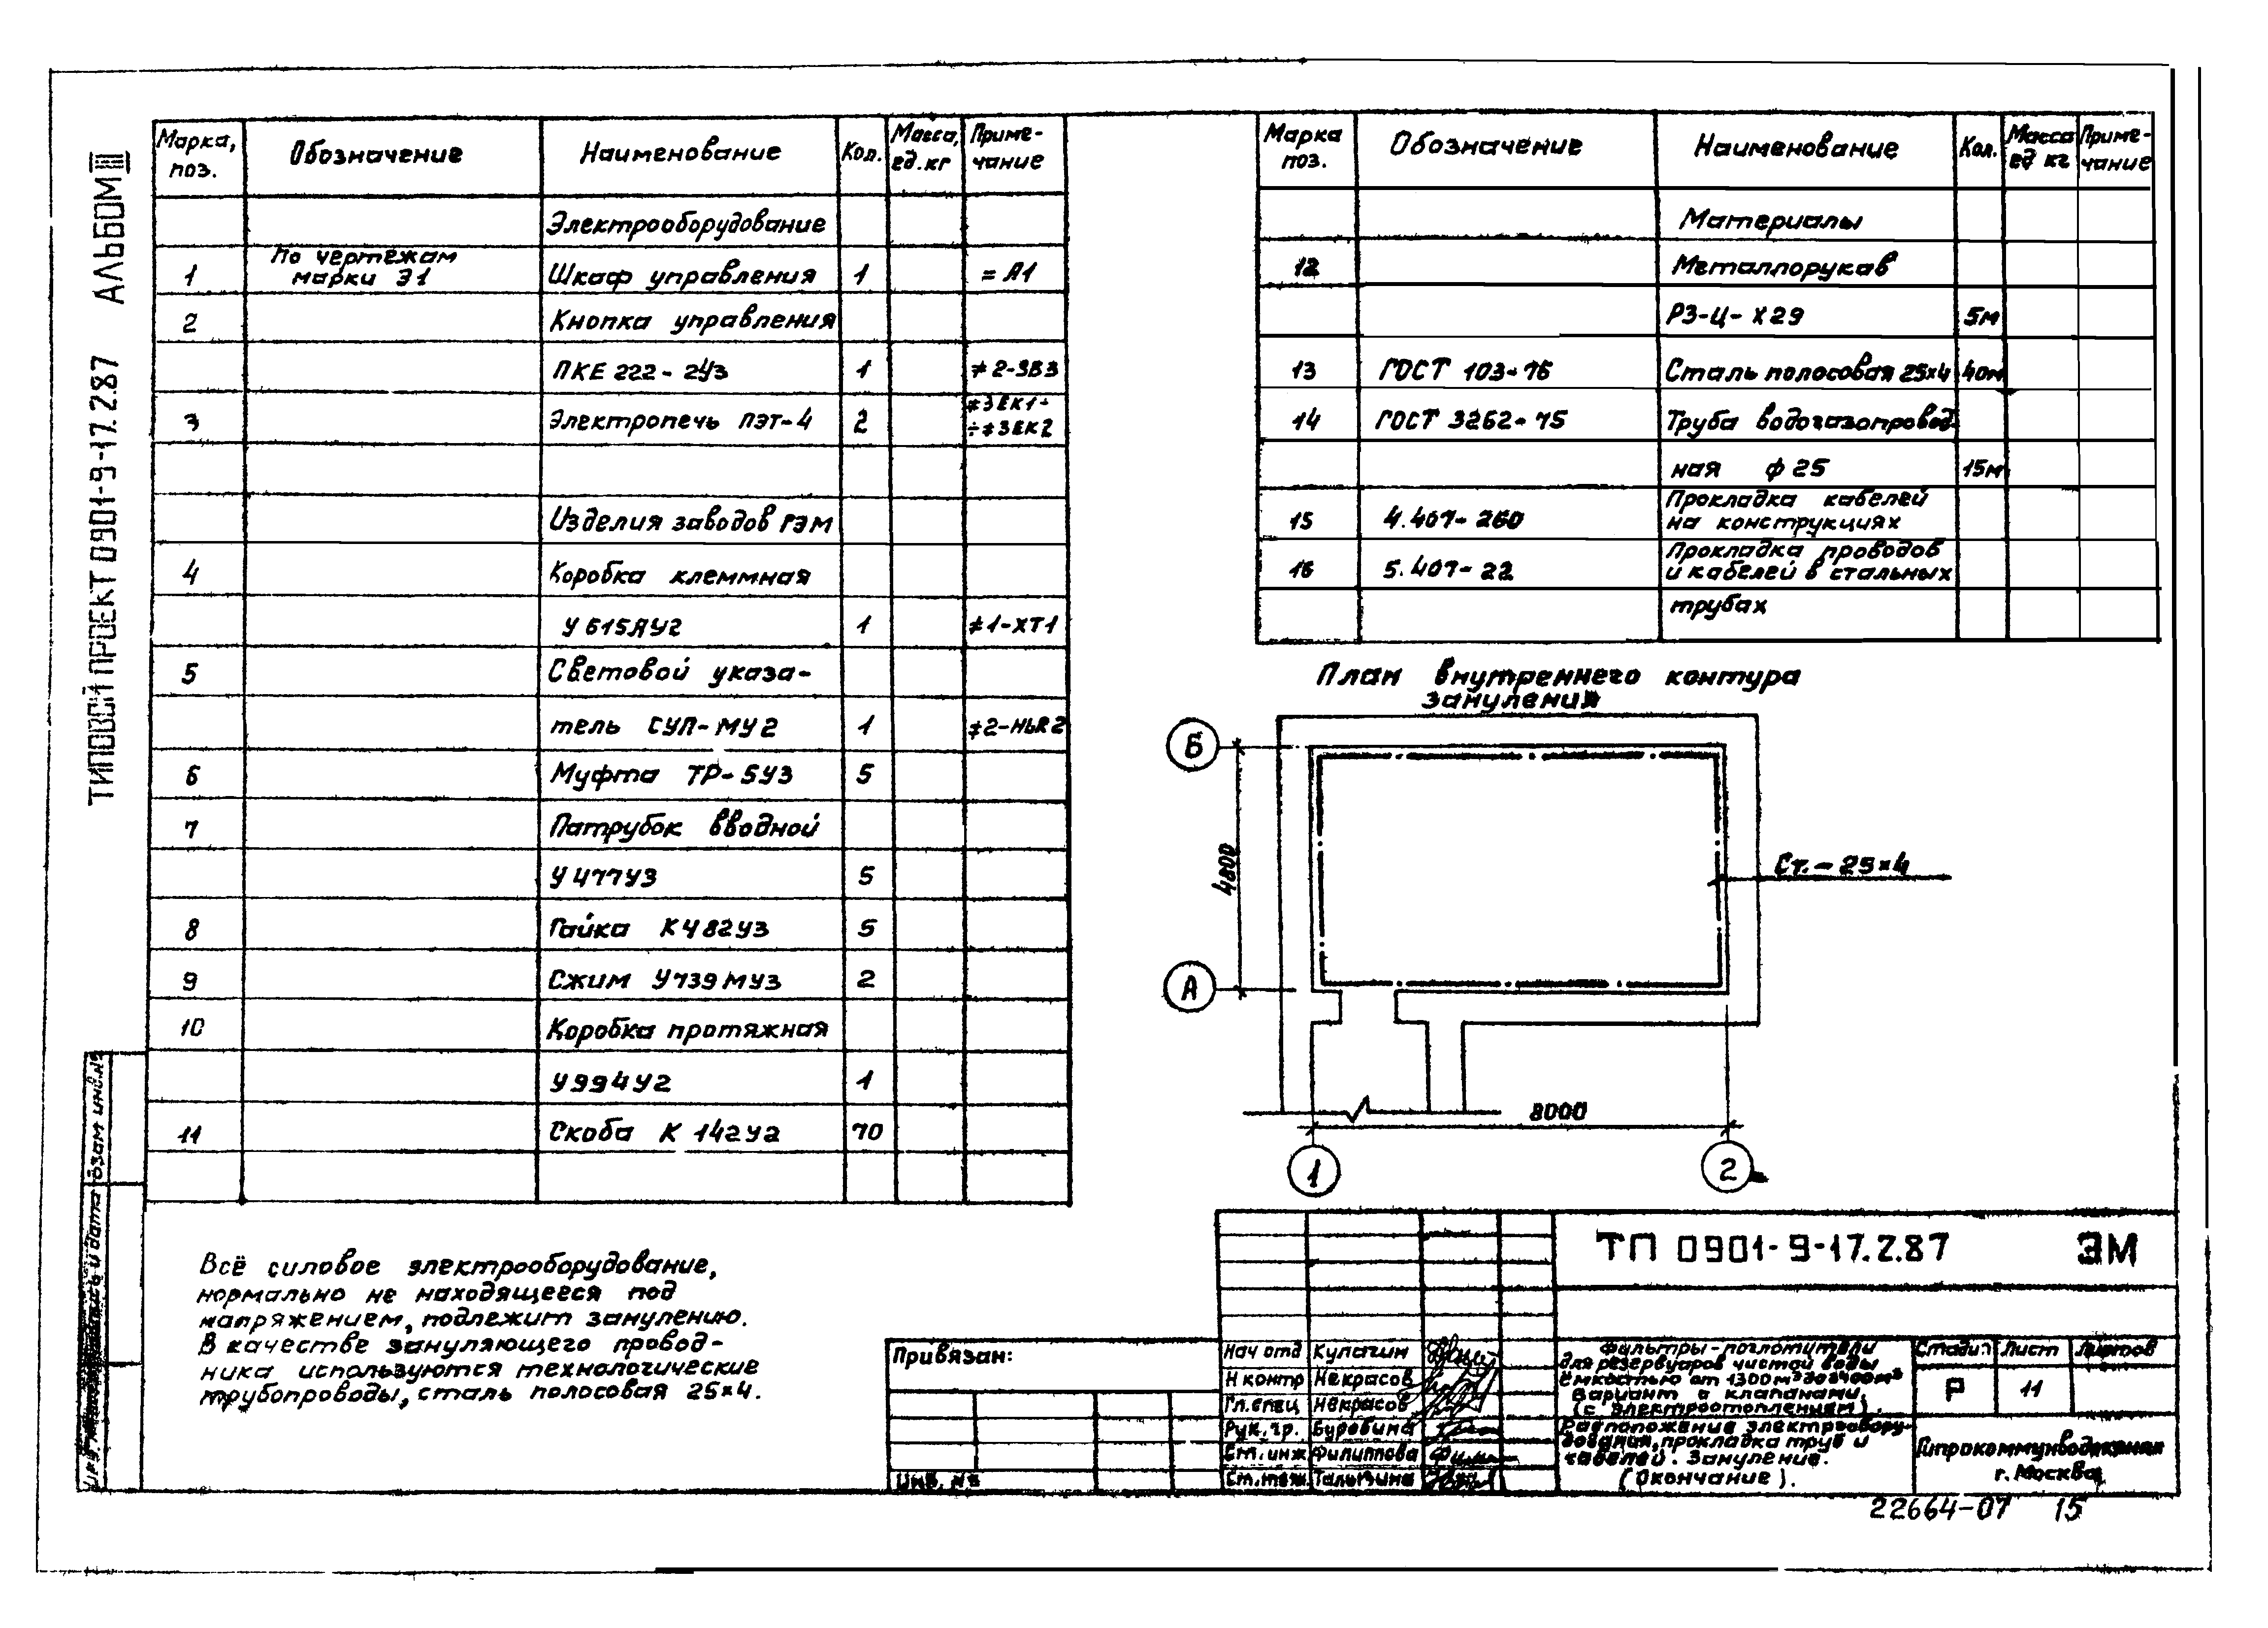 ТИПОВОЙ ПРОЕКТ 0901-9-17.2.87 АЛЬБОМ III
Марка, поз. Обозначение Наименование Кол. Масса, ед. кг Приме-чание
Электрооборудование
1 По чертежам марки Э1 Шкаф управления 1 = А1
2 Кнопка управления
ПКЕ 222 - 2У3 1 ≠2-SB3
3 Электропечь ПЭТ-4 2 ≠3ЕК1÷ ÷≠3ЕК2
Изделия заводов ГЭМ
4 Коробка клеммная
У 615АУ2 1 ≠1-ХТ1
5 Световой указа-
тель СУП-МУ2 1 ≠2-HLR2
6 Муфта ТР-5У3 5
7 Патрубок вводной
У 477У3 5
8 Гайка К482У3 5
9 Сжим У739МУ3 2
10 Коробка протяжная
У994У2 1
11 Скоба К 142У2 70
Всё силовое электрооборудование,
нормально не находящееся под
напряжением, подлежит занулению.
В качестве зануляющего провод-
ника используются технологические
трубопроводы, сталь полосовая 25×4.
Марка поз. Обозначение Наименование Кол. Масса ед кг Приме-чание
Материалы
12 Металлорукав
РЗ-Ц-Х29 5м
13 ГОСТ 103-76 Сталь полосовая 25×4 40м
14 ГОСТ 3262-75 Труба водогазопровод-
ная ф 25 15м
15 4.407-260 Прокладка кабелей
на конструкциях
16 5.407-22 Прокладка проводов
и кабелей в стальных
трубах
План внутреннего контура
зануления
Б
4800
А
Ст.-25×4
8000
1
2
взам инв.№
и дата
Привязан:
Инв. №
Нач отд Кулагин
Н контр Некрасов
Гл.спец Некрасов
Рук. гр. Буробина
Ст. инж Филиппова
Ст.тех.
ТП 0901-9-17.2.87 ЭМ
Фильтры-поглотители
для резервуаров чистой воды
ёмкостью от 1300м³
Вариант с клапанами.
(с электроотоплением).
Расположение электрообору-
дования, прокладка труб и
кабелей. Зануление.
(Окончание).
Стадия Лист Листов
Р 11
Гипрокоммунводоканал
г. Москва
22664-07 15